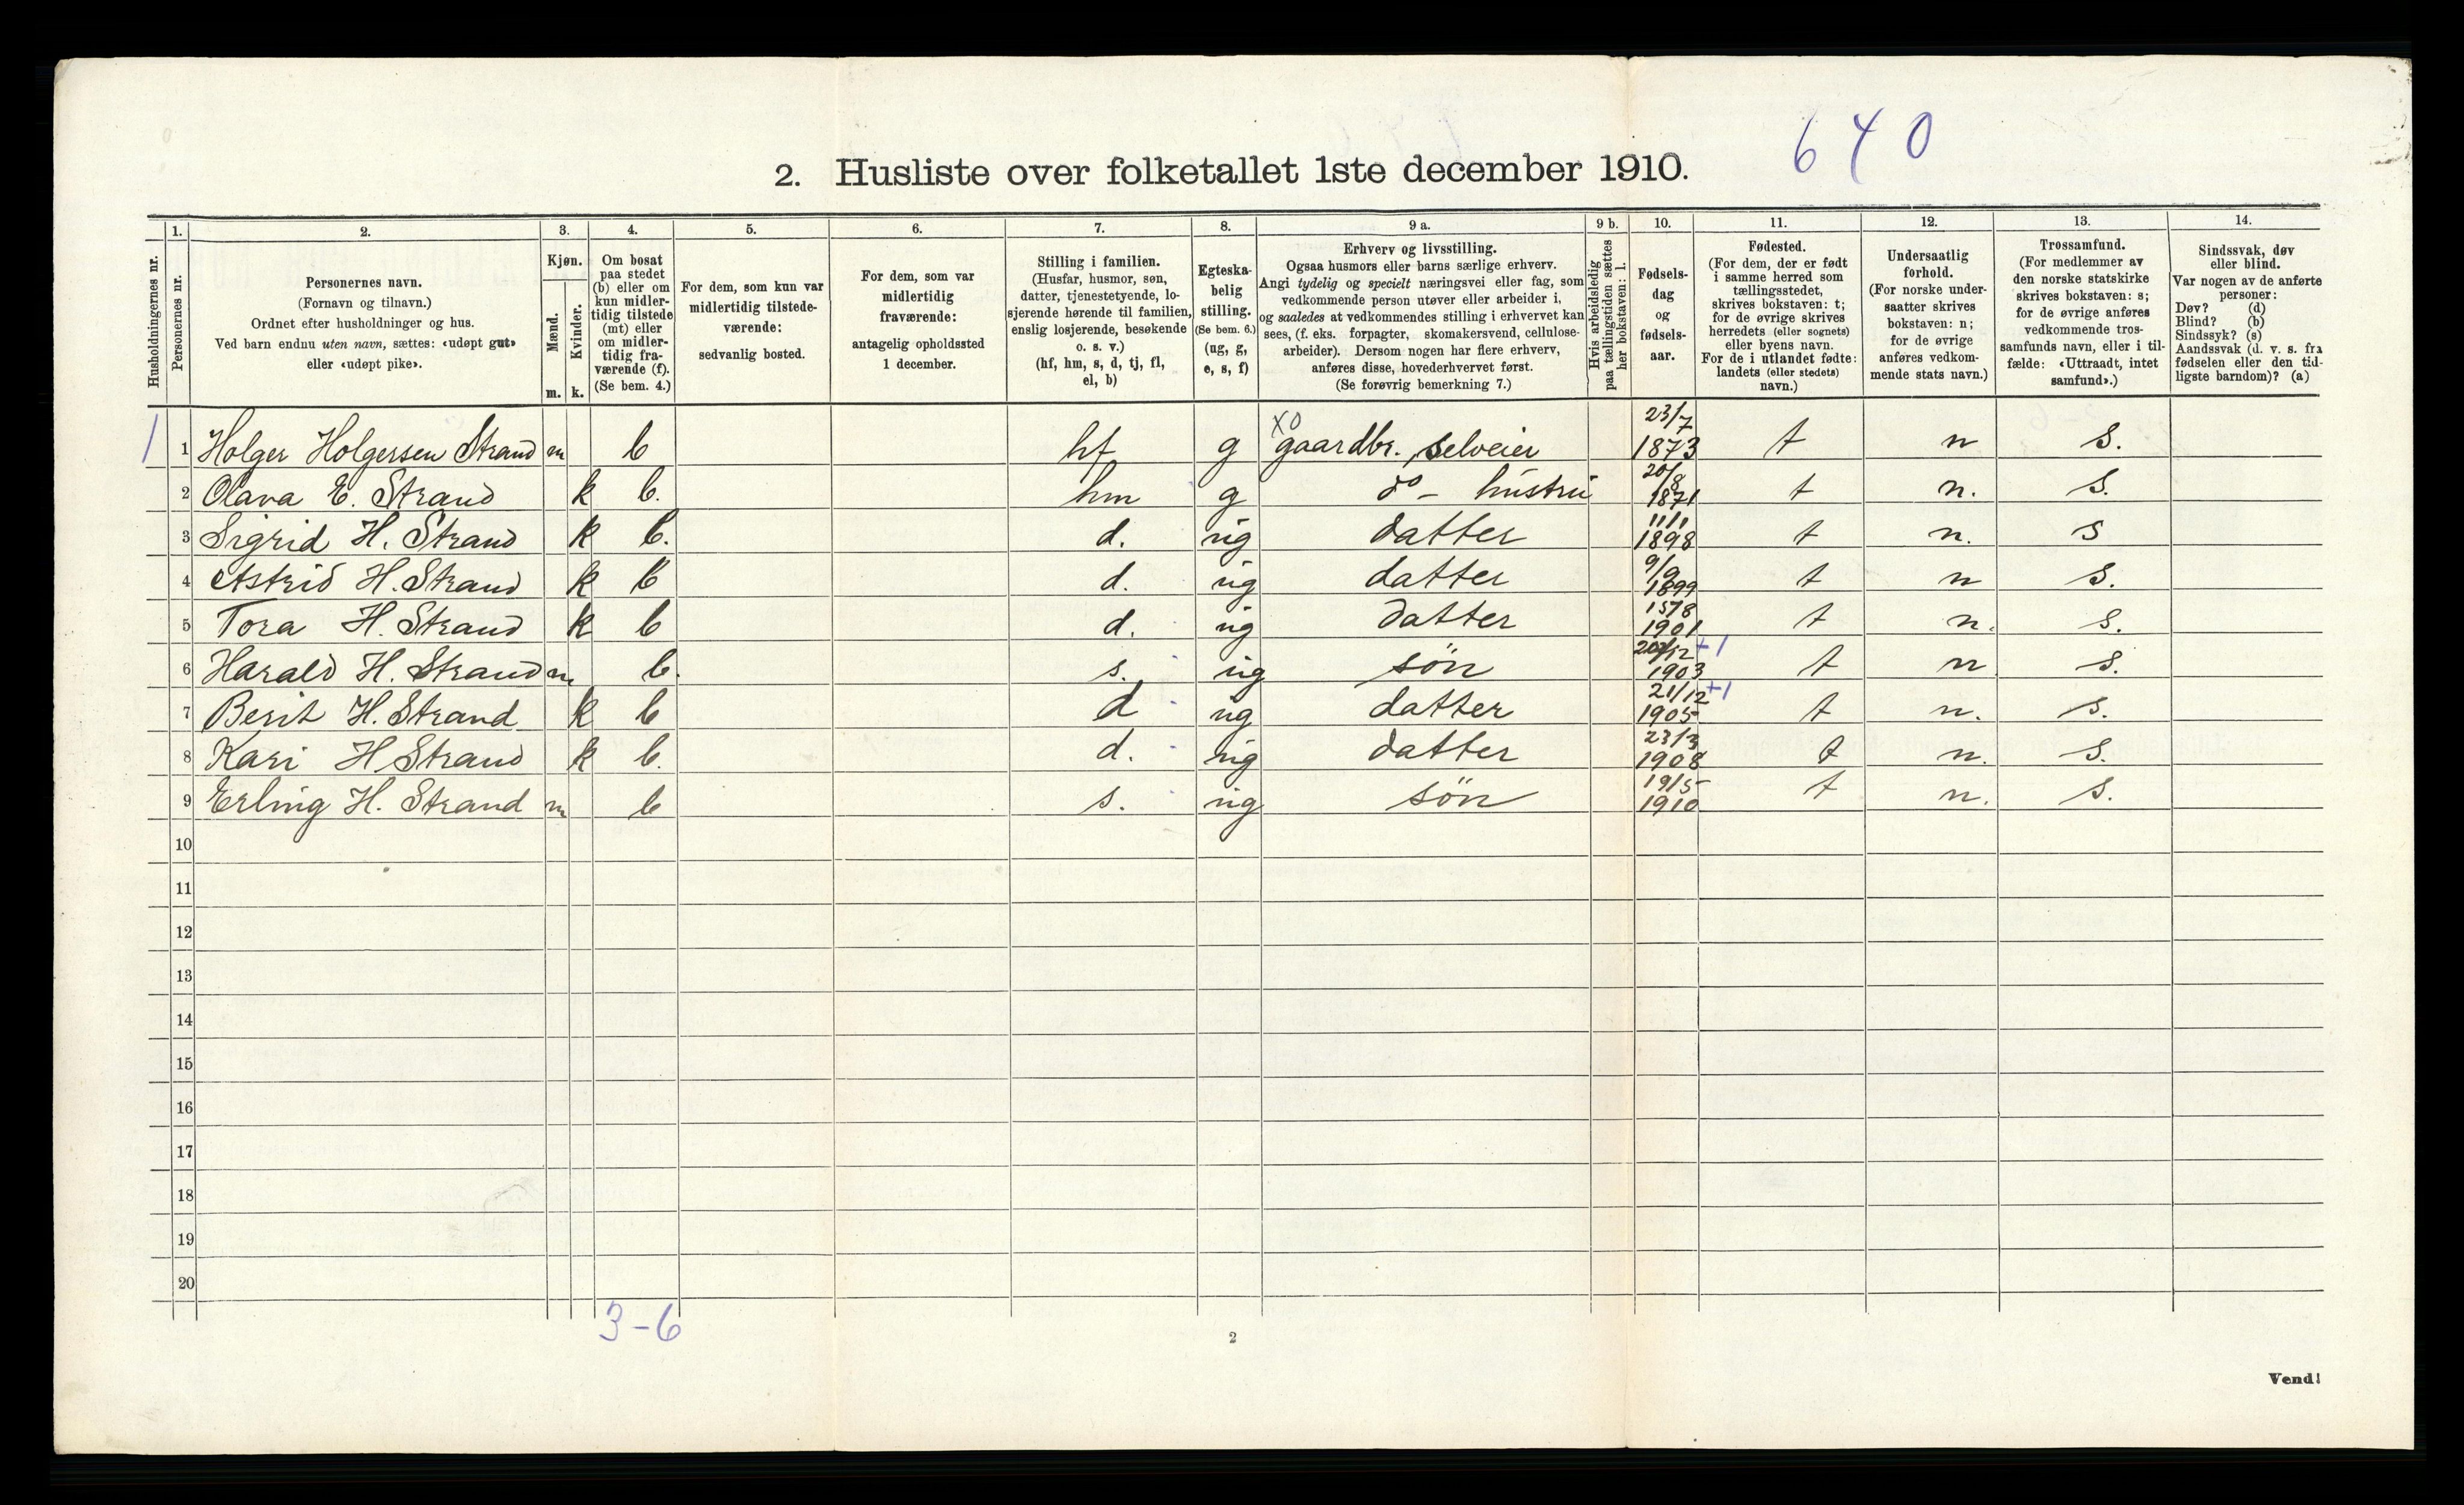 640
2. Husliste over folketallet 1ste december 1910.
Husholdningernes nr.
1.
Personernes nr.
2.
Personernes navn.
(Fornavn og tilnavn.)
Ordnet efter husholdninger og hus.
Ved barn endnu uten navn, sættes: «udøpt gut»
eller «udøpt pike».
3.
Kjøn.
Mænd.
Kvinder.
m. k.
4.
Om bosat
paa stedet
(b) eller om
kun midler-
tidig tilstede
(mt) eller
om midler-
tidig fra-
værende (f).
(Se bem. 4.)
5.
For dem, som kun var
midlertidig tilstede-
værende:
sedvanlig bosted.
6.
For dem, som var
midlertidig
fraværende:
antagelig opholdssted
1 december.
7.
Stilling i familien.
(Husfar, husmor, søn,
datter, tjenestetyende, lo-
sjerende hørende til familien,
enslig losjerende, besøkende
o. s. v.)
(hf, hm, s, d, tj, fl,
el, b)
8.
Egteska-
belig
stilling.
(Se bem. 6.)
(ug, g,
e, s, f)
9 a.
Erhverv og livsstilling.
Ogsaa husmors eller barns særlige erhverv.
Angi tydelig og specielt næringsvei eller fag, som
vedkommende person utøver eller arbeider i,
og saaledes at vedkommendes stilling i erhvervet kan
sees, (f. eks. forpagter, skomakersvend, cellulose-
arbeider). Dersom nogen har flere erhverv,
anføres disse, hovederhvervet først.
(Se forøvrig bemerkning 7.)
9 b.
Hvis arbeidsledig
paa tællingstiden sættes
her bokstaven: l.
10.
Fødsels-
dag
og
fødsels-
aar.
11.
Fødested.
(For dem, der er født
i samme herred som
tællingsstedet,
skrives bokstaven: t;
for de øvrige skrives
herredets (eller sognets)
eller byens navn.
For de i utlandet fødte:
landets (eller stedets)
navn.)
12.
Undersaatlig
forhold.
(For norske under-
saatter skrives
bokstaven: n;
for de øvrige
anføres vedkom-
mende stats navn.)
13.
Trossamfund.
(For medlemmer av
den norske statskirke
skrives bokstaven: s;
for de øvrige anføres
vedkommende tros-
samfunds navn, eller i til-
fælde: «Uttraadt, intet
samfund».)
14.
Sindssvak, døv
eller blind.
Var nogen av de anførte
personer:
Døv? (d)
Blind? (b)
Sindssyk? (s)
Aandssvak (d. v. s. fra
fødselen eller den tid-
ligste barndom)? (a)
1 1 Holger Holgersen Strand m b hf g XO gaardbr. selveier 23/7 1873 t n s.
2 Olava E. Strand k b. hm g do - hustru 20/8 1871 t n. s.
3 Sigrid H. Strand k b. d. ug datter 11/1 1898 t n. s
4 Astrid H. Strand k b d. ug datter 9/9 1899 t n s.
5 Tora H. Strand k b d. ug datter 15/8 1901 t n. s.
6 Harald H. Strand m b. s. ug søn /12 +1 1903 t n s.
7 Berit H. Strand k b d ug datter 21/12 +1 1905 t n. s.
8 Kari H Strand k b. d. ug datter 23/3 1908 t n. s.
9 Erling H. Strand m b s. ug søn 19/5 1910 t n. s.
10
11
12
13
14
15
16
17
18
19
20
3-6
2
Vend!